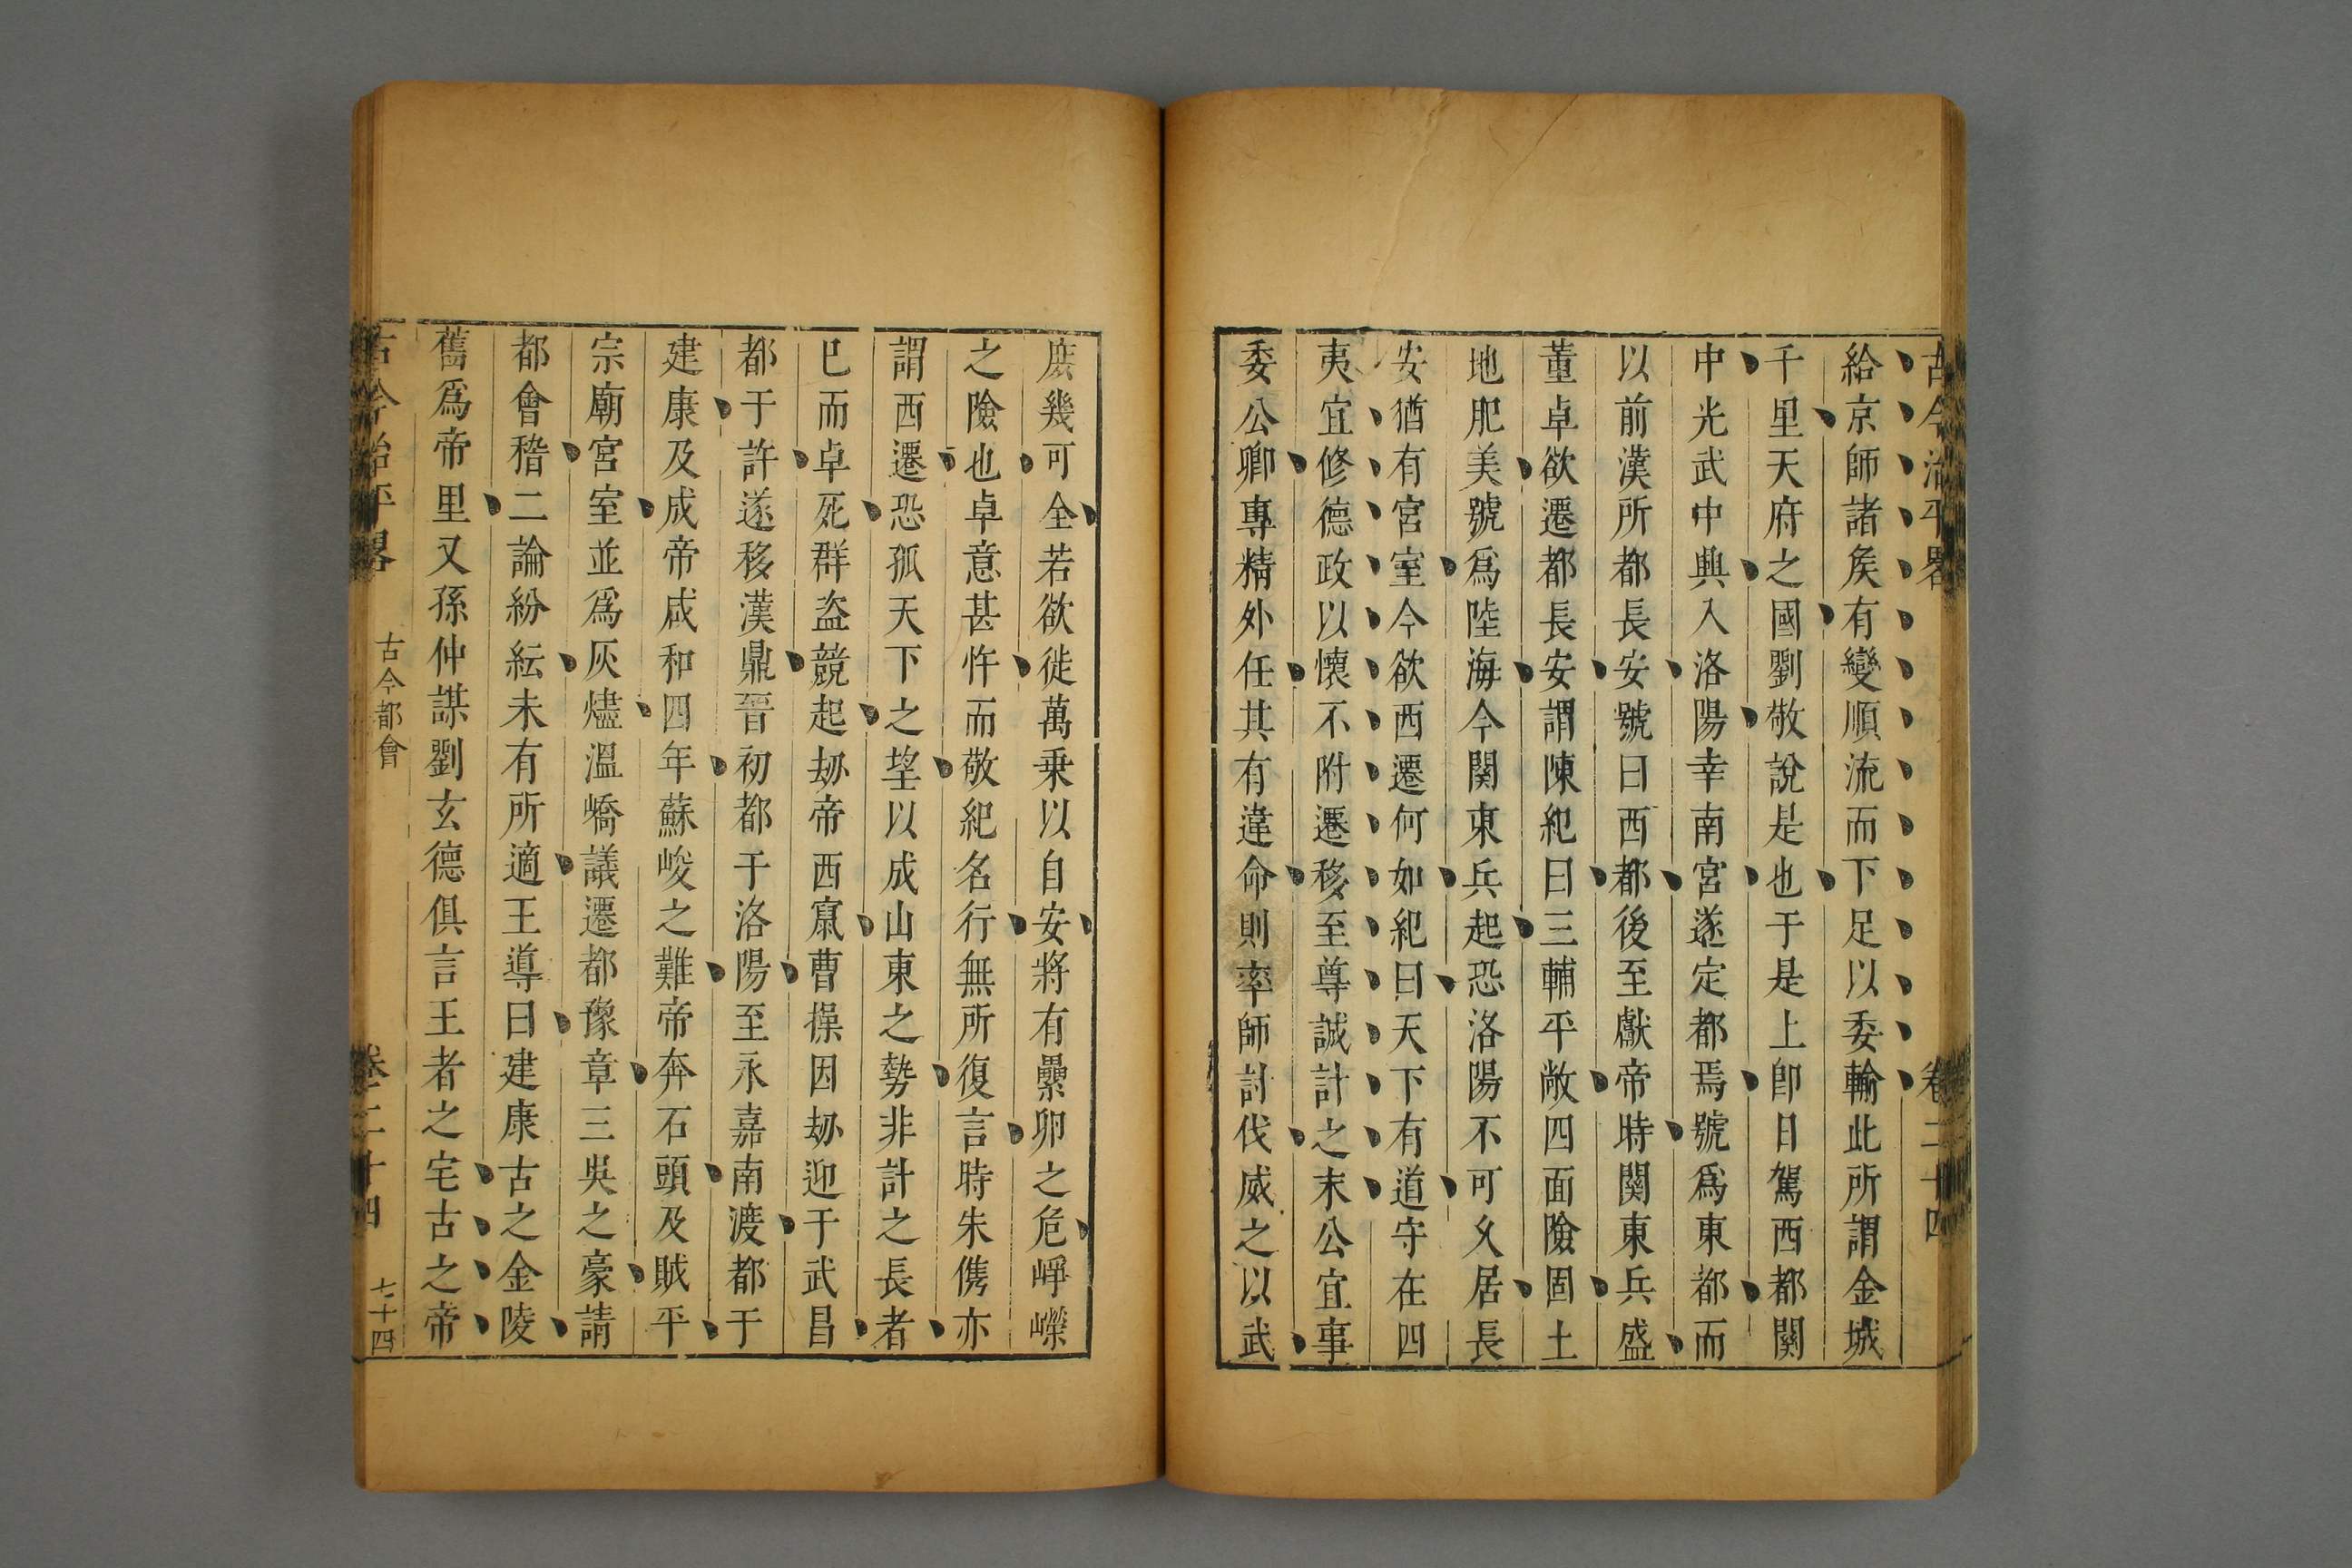 古今治平畧 卷二十四
給京師諸矦有變順流而下足以委輸此所謂金城
千里天府之國劉敬說是也于是上卽日駕西都關
中光武中興入洛陽幸南宮遂定都焉號爲東都而
以前漢所都長安號曰西都後至獻帝時関東兵盛
董卓欲遷都長安謂陳紀曰三輔平敞四面險固土
地肥美號爲陸海今関東兵起恐洛陽不可久居長
安猶有宮室今欲西遷何如紀曰天下有道守在四
夷宜修德政以懷不附遷移至尊誠計之末公宜事
委公卿專精外任其有違命則率師討伐威之以武
庶幾可全若欲徙萬乗以自安將有纍卵之危崢嶸
之險也卓意甚忤而敬紀名行無所復言時朱儁亦
謂西遷恐孤天下之望以成山東之勢非計之長者
已而卓死群盗競起刼帝西竄曹操因刼迎于武昌
都于許遂移漢鼎晉初都于洛陽至永嘉南渡都于
建康及成帝咸和四年蘇峻之難帝奔石頭及賊平
宗廟宮室並爲灰燼溫嶠議遷都豫章三吳之豪請
都會稽二論紛紜未有所適王導曰建康古之金陵
舊爲帝里又孫仲謀劉玄德俱言王者之宅古之帝
古今治平畧 古今都會 卷二十四 七十四